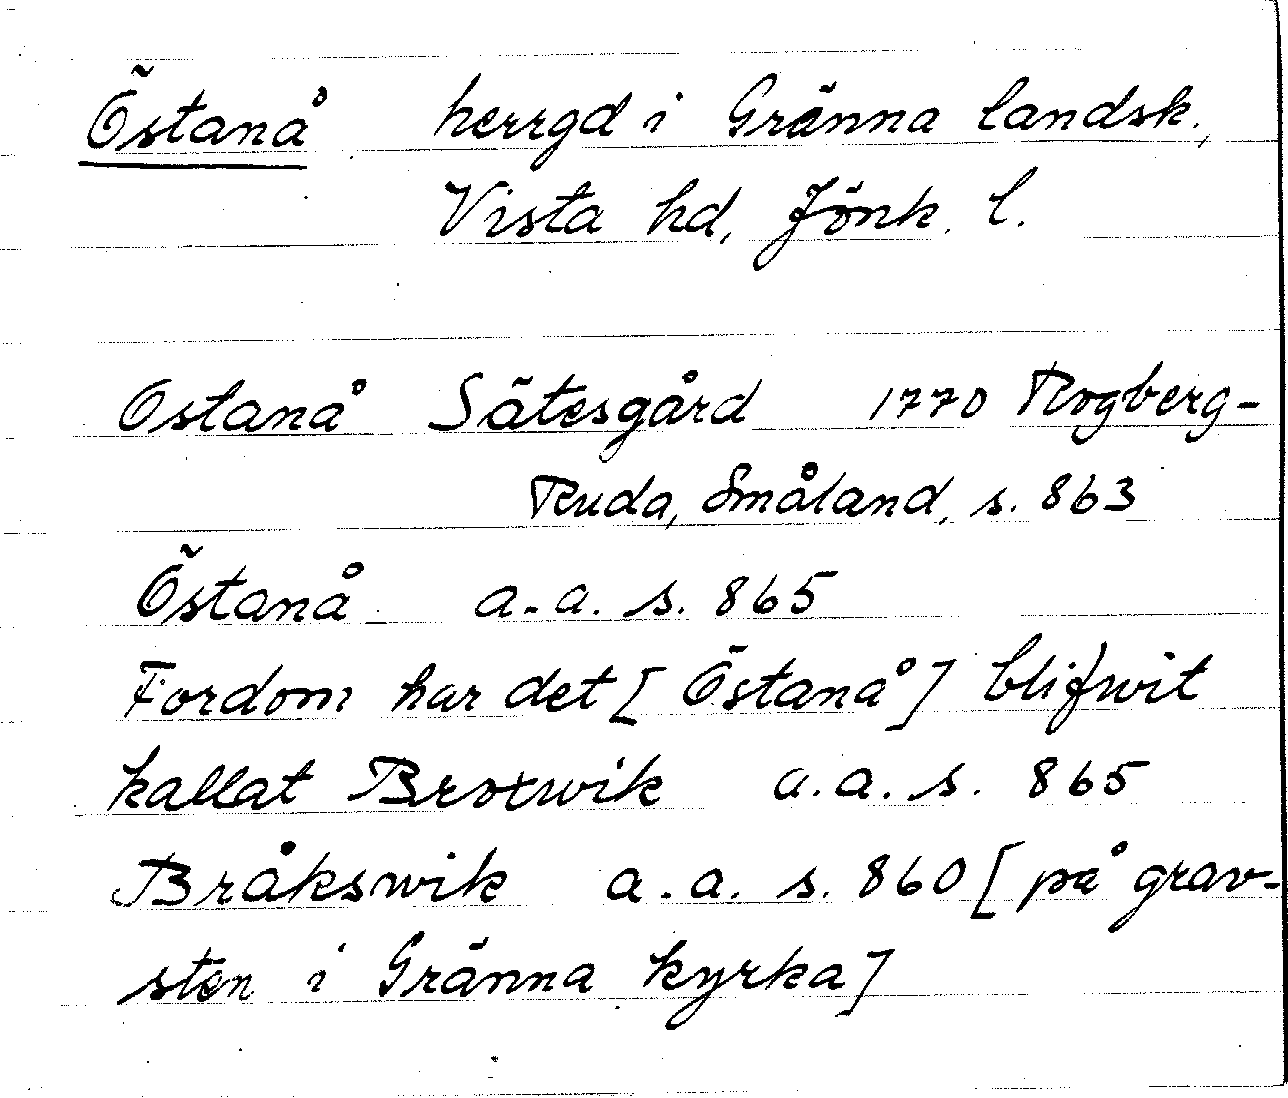 Östanå herrgd i Gränna landsk.,
Vista hd, Jönk. l.
Ostanå Sätesgård 1770 Rogberg-
Ruda, Småland, s. 863
Östanå a.a. s. 865
Fordom har det [Östanå] blifwit
kallat Broxwik a.a. s. 865
Bråkswik a.a. s. 860 [på grav-
sten i Gränna kyrka]